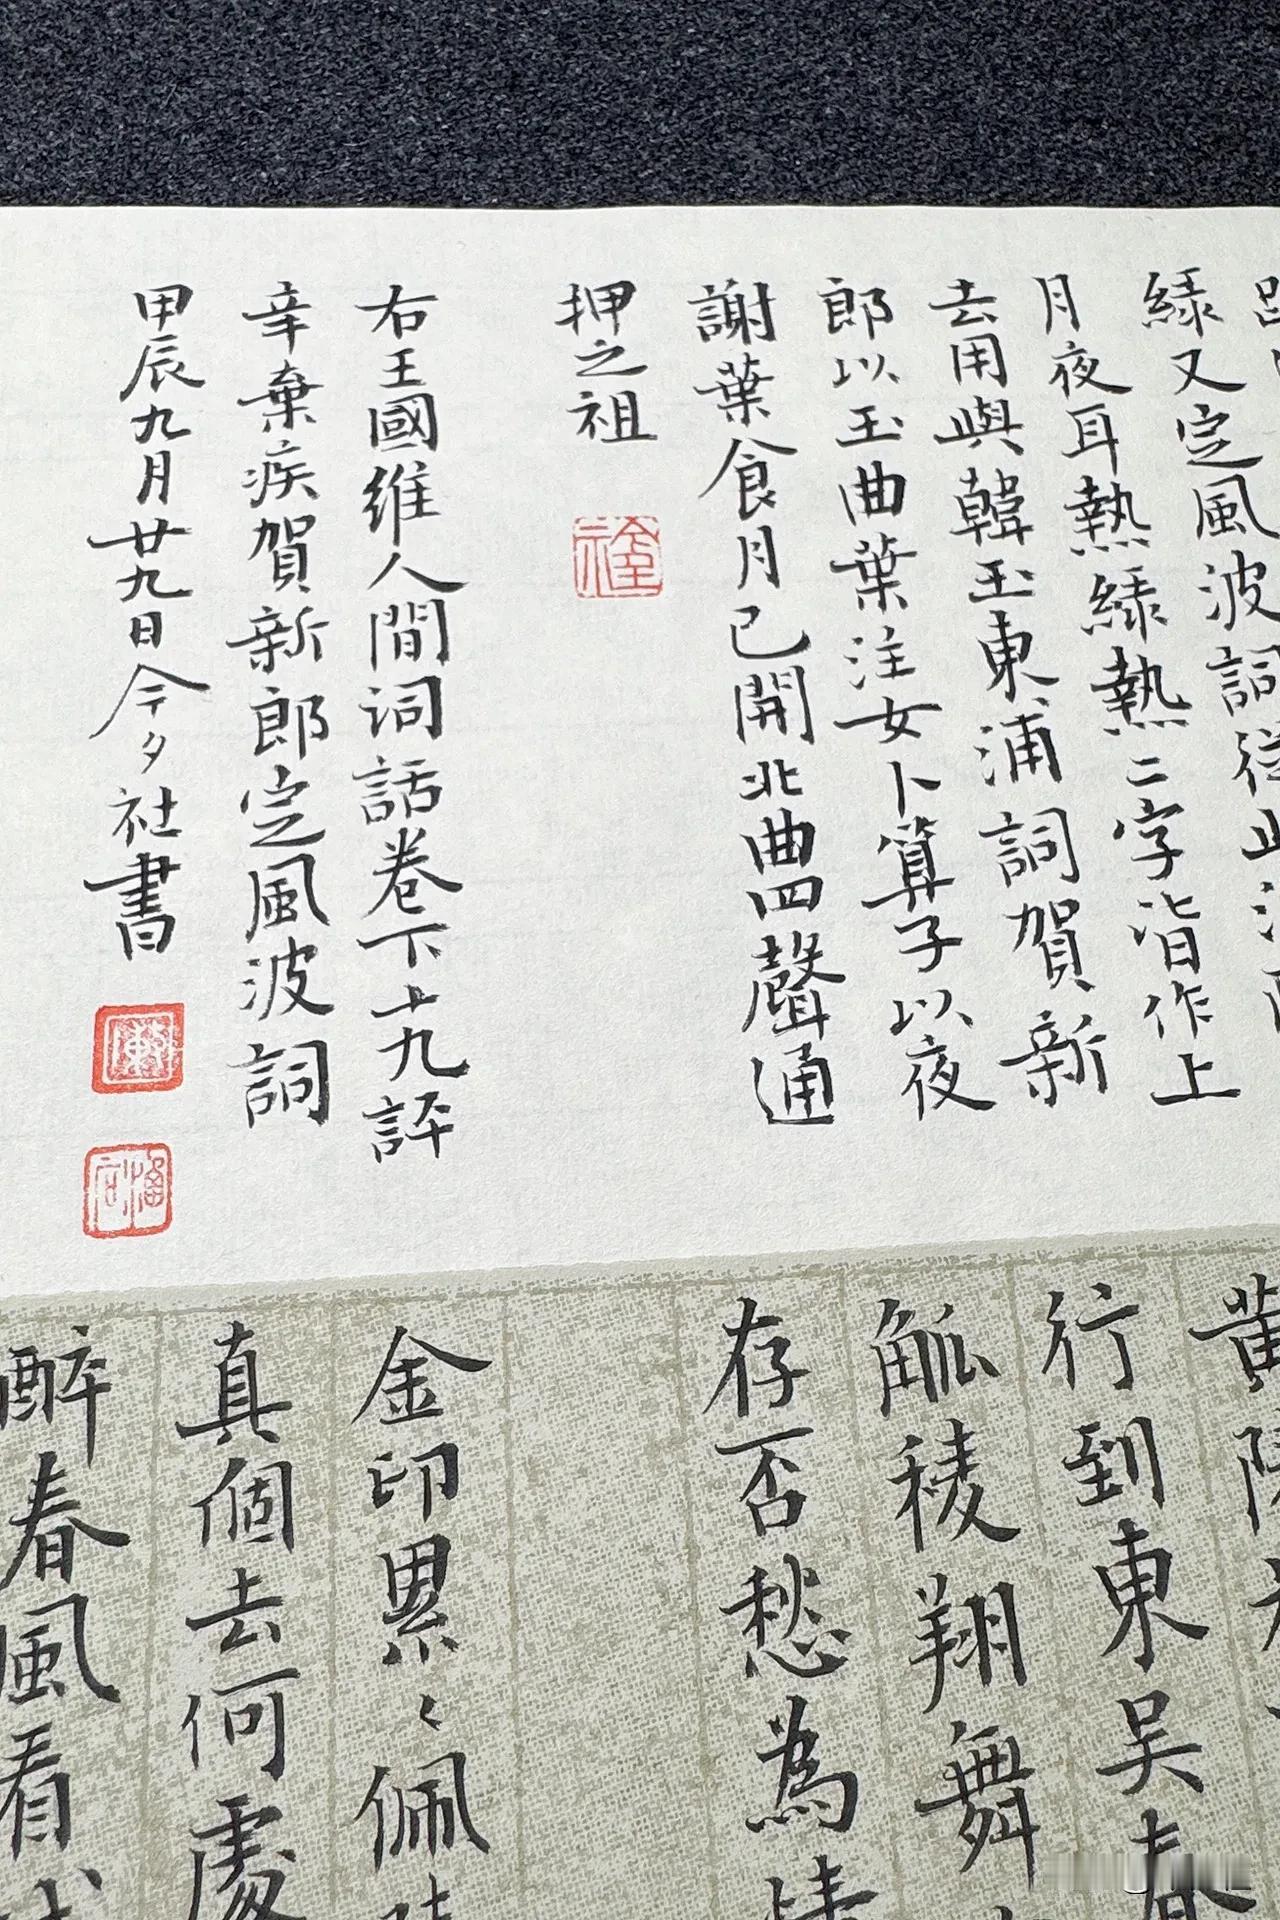 綠又定風波詞從此酒
月夜耳熱綠熱二字皆作上
去用與韓玉東浦詞賀新
郎以玉曲葉注女卜算子以夜
謝葉食月已開北曲四聲通
押之祖
右王國維人間词話卷下十九評
辛棄疾賀新郎定風波詞
甲辰九月廿九日今夕社書
黄陵
行到東吴春
觚稜翔舞
存否愁為情
金印累〻佩
真個去何處
醉春風看